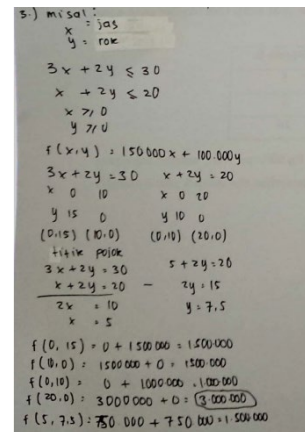 3.) misal :
x = jas
y = rok
3x + 2y ≤ 30
x + 2y ≤ 20
x ≥ 0
y ≥ 0
f(x,y) = 150000x + 100.000y
3x + 2y = 30   x + 2y = 20
x 0 10   x 0 20
y 15 0   y 10 0
(0,15) (10,0)   (0,10) (20,0)
titik pojok
3x + 2y = 30   5 + 2y = 20
x + 2y = 20 -   2y = 15
2x = 10   y = 7,5
x = 5
f(0, 15) = 0 + 1500 000 = 1.500.000
f(10,0) = 1500000 + 0 = 1500.000
f(0,10) = 0 + 1000000 = 1.000.000
f(20,0) = 3000000 + 0 = 3.000.000
f(5, 7,5) : 750.000 + 750000 = 1.500.000